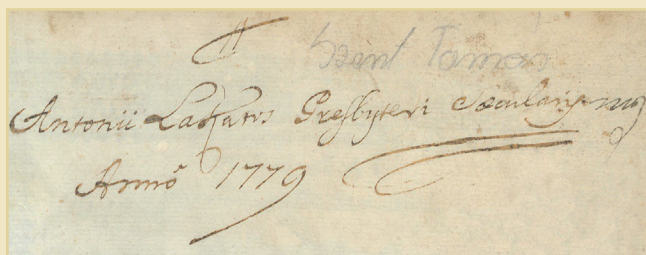 Szent Tamas
Antonii Lakatos Presbyteri Sæcularis mp
Anno 1779